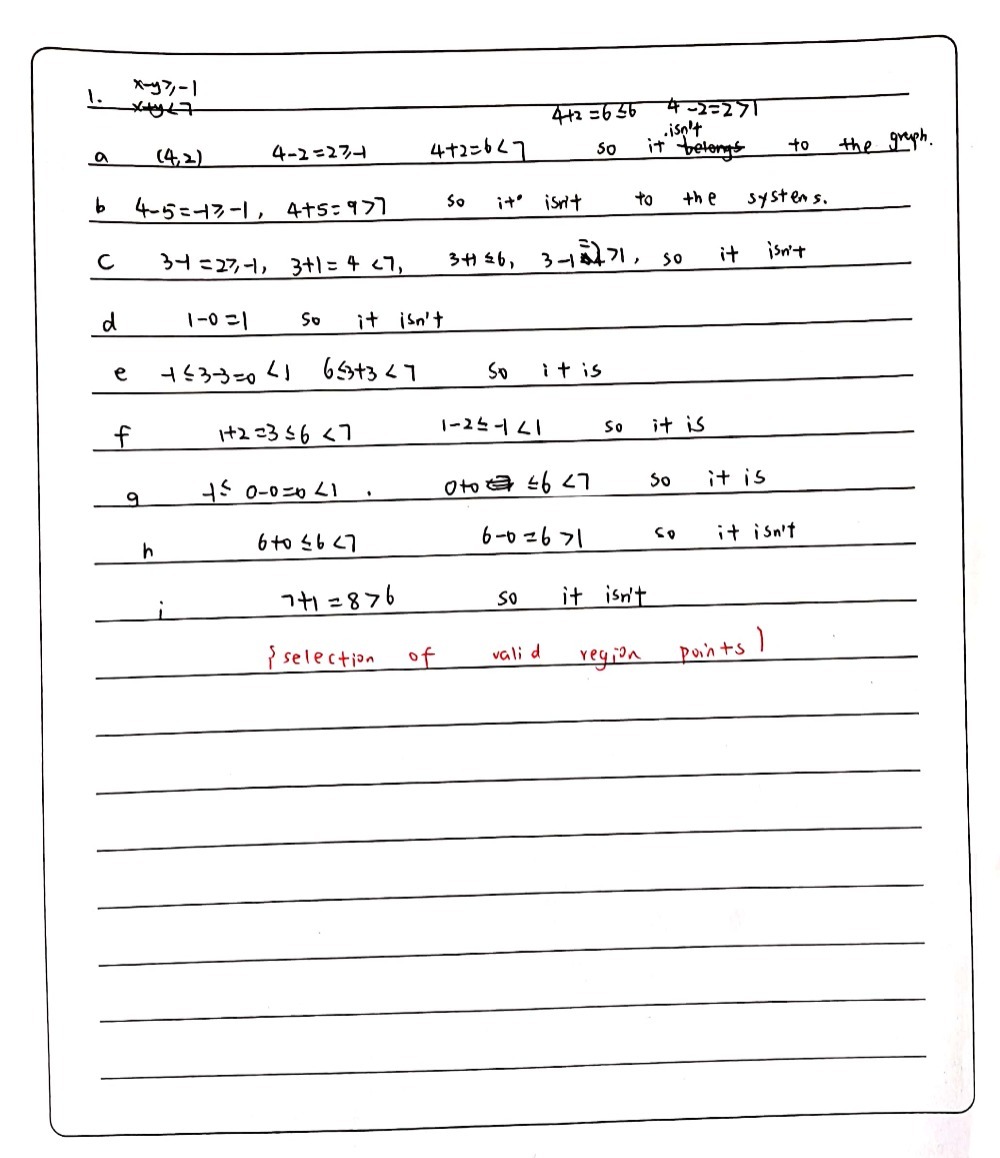 1. x-y≥-1
x+y<7
4+2=6≤6 4-2=2>1
a (4,2) 4-2=2≥-1 4+2=6<7 so it isn't belongs to the graph.
b 4-5=-1≥-1, 4+5=9>7 so it isn't to the systems.
c 3-1=2≥-1, 3+1=4<7, 3+1≤6, 3-1=2>1, so it isn't
d 1-0=1 so it isn't
e -1≤3-3=0<1 6≤3+3<7 so it is
f 1+2=3≤6<7 1-2≤-1<1 so it is
g -1≤0-0=0<1. 0+0≤6<7 so it is
h 6+0≤6<7 6-0=6>1 so it isn't
i 7+1=8>6 so it isn't
{selection of valid region points}